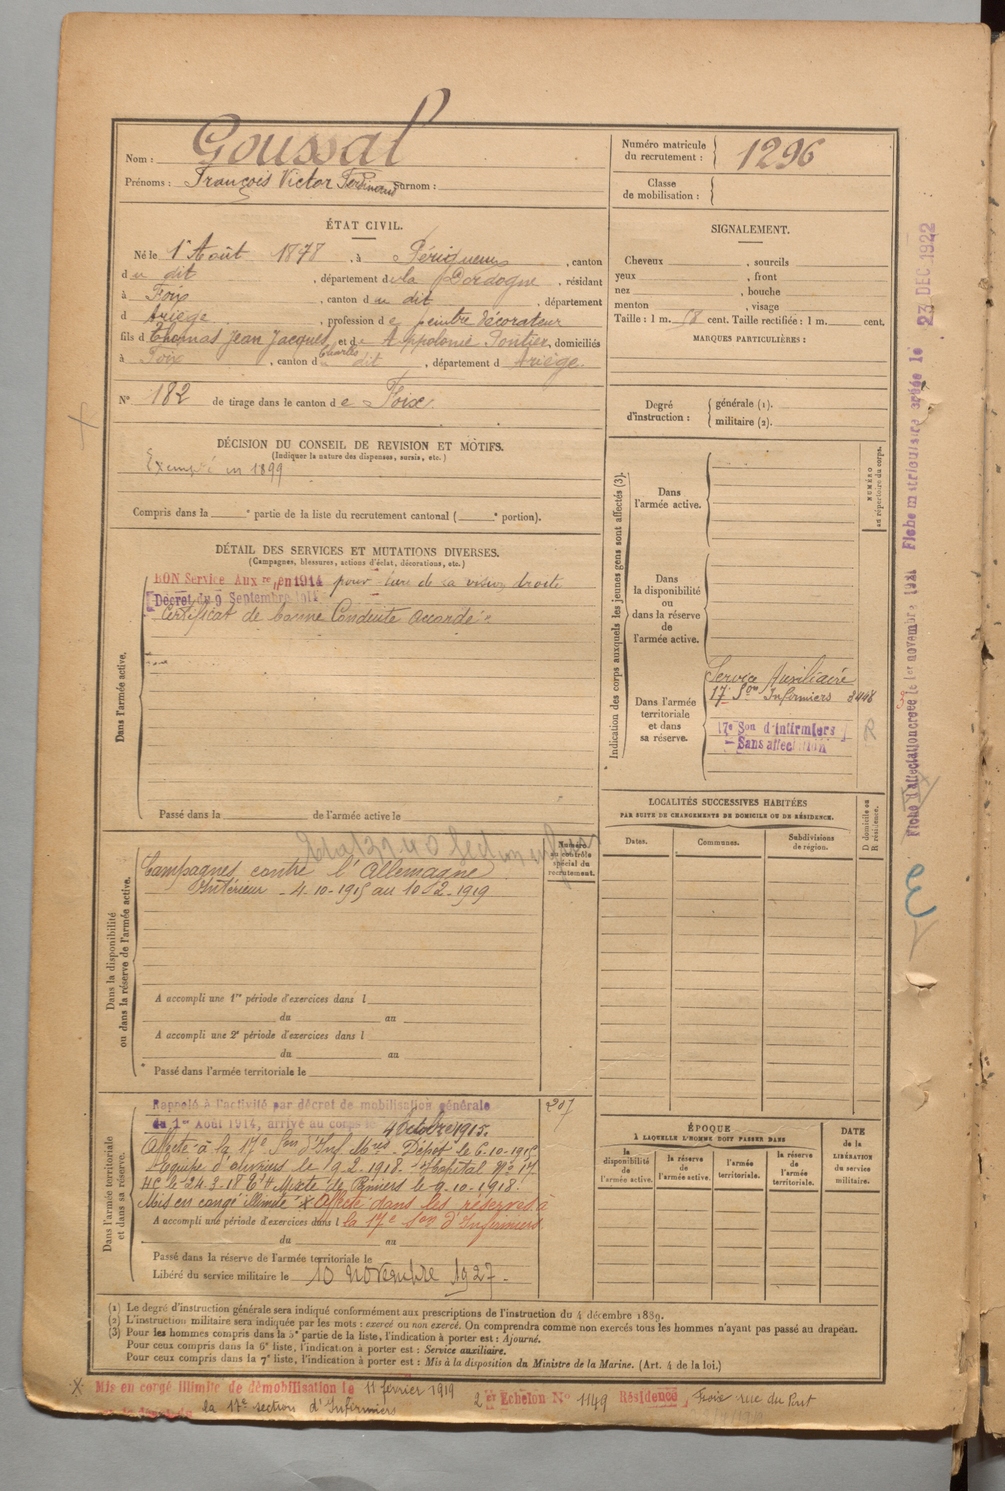 Nom : Goussal
Prénoms : François Victor Ferdinand Surnom :
Numéro matricule du recrutement : 1296
Classe de mobilisation :
ÉTAT CIVIL.
Né le 1er Août 1878, à Périgueux, canton
du dit, département de la Dordogne, résidant
à Foix, canton du dit, département
d Ariège, profession de peintre décorateur
fils d Thomas Jean Jacques Charles et de Appolonie Pontier, domiciliés
à Foix, canton du dit, département d Ariège.
N° 182 de tirage dans le canton de Foix.
SIGNALEMENT.
Cheveux, sourcils
yeux, front
nez, bouche
menton, visage
Taille : 1 m. 58 cent. Taille rectifiée : 1 m. cent.
MARQUES PARTICULIÈRES :
Degré d'instruction : générale (1).
militaire (2).
DÉCISION DU CONSEIL DE REVISION ET MOTIFS.
(Indiquer la nature des dispenses, sursis, etc.)
Exempté en 1899
Compris dans la e partie de la liste du recrutement cantonal ( e portion).
DÉTAIL DES SERVICES ET MUTATIONS DIVERSES.
(Campagnes, blessures, actions d'éclat, décorations, etc.)
Dans l'armée active.
BON Service Auxre en 1914 pour de la vision droite
Décret du 9 Septembre 1914
Certificat de bonne Conduite accordé
Passé dans la de l'armée active le
Indication des corps auxquels les jeunes gens sont affectés (3).
NUMÉRO au répertoire du corps.
Dans l'armée active.
Dans la disponibilité ou dans la réserve de l'armée active.
Dans l'armée territoriale et dans sa réserve.
Service Auxiliaire
17e Son Infirmiers 3448
17e Son d'infirmiers
Sans affectation
R
LOCALITÉS SUCCESSIVES HABITÉES
PAR SUITE DE CHANGEMENTS DE DOMICILE OU DE RÉSIDENCE.
Dates.
Communes.
Subdivisions de région.
D domicile ou R résidence.
Dans la disponibilité ou dans la réserve de l'armée active.
Numéro au contrôle spécial du recrutement.
Campagnes contre l'Allemagne
Intérieur - 4-10-1915 au 10-2-1919
A accompli une 1re période d'exercices dans l
du au
A accompli une 2e période d'exercices dans l
du au
Passé dans l'armée territoriale le
Dans l'armée territoriale et dans sa réserve.
207
Rappelé à l'activité par décret de mobilisation générale
du 1er Août 1914, arrivé au corps le 4 Octobre 1915.
Affecté à la 17e Son d'Inf Mres Dépôt le 6-10-1915
Equipe d'ouvriers le 9-2-1918 - Hopital No 17
le 24-3-18 Mixte de Pamiers le 9-10-1918.
Mis en congé illimité x Affecté dans les réserves à
A accompli une période d'exercices dans l la 17e Son d'Infirmiers
du au
Passé dans la réserve de l'armée territoriale le
Libéré du service militaire le 10 novembre 1927.
ÉPOQUE
À LAQUELLE L'HOMME DOIT PASSER DANS
la disponibilité de l'armée active.
la réserve de l'armée active.
l'armée territoriale.
la réserve de l'armée territoriale.
DATE de la LIBÉRATION du service militaire.
(1) Le degré d'instruction générale sera indiqué conformément aux prescriptions de l'instruction du 4 décembre 1889.
(2) L'instruction militaire sera indiquée par les mots : exercé ou non exercé. On comprendra comme non exercés tous les hommes n'ayant pas passé au drapeau.
(3) Pour les hommes compris dans la 5e partie de la liste, l'indication à porter est : Ajourné.
Pour ceux compris dans la 6e liste, l'indication à porter est : Service auxiliaire.
Pour ceux compris dans la 7e liste, l'indication à porter est : Mis à la disposition du Ministre de la Marine. (Art. 4 de la loi.)
X Mis en congé illimité de démobilisation le 11 février 1919 2er Echelon No 1149 Résidence Foix rue du Pont
la 17e section d'Infirmiers
Fiche d'affectation créée le 1er novembre 1921 Fiche matriculaire créée le 23 DEC 1922